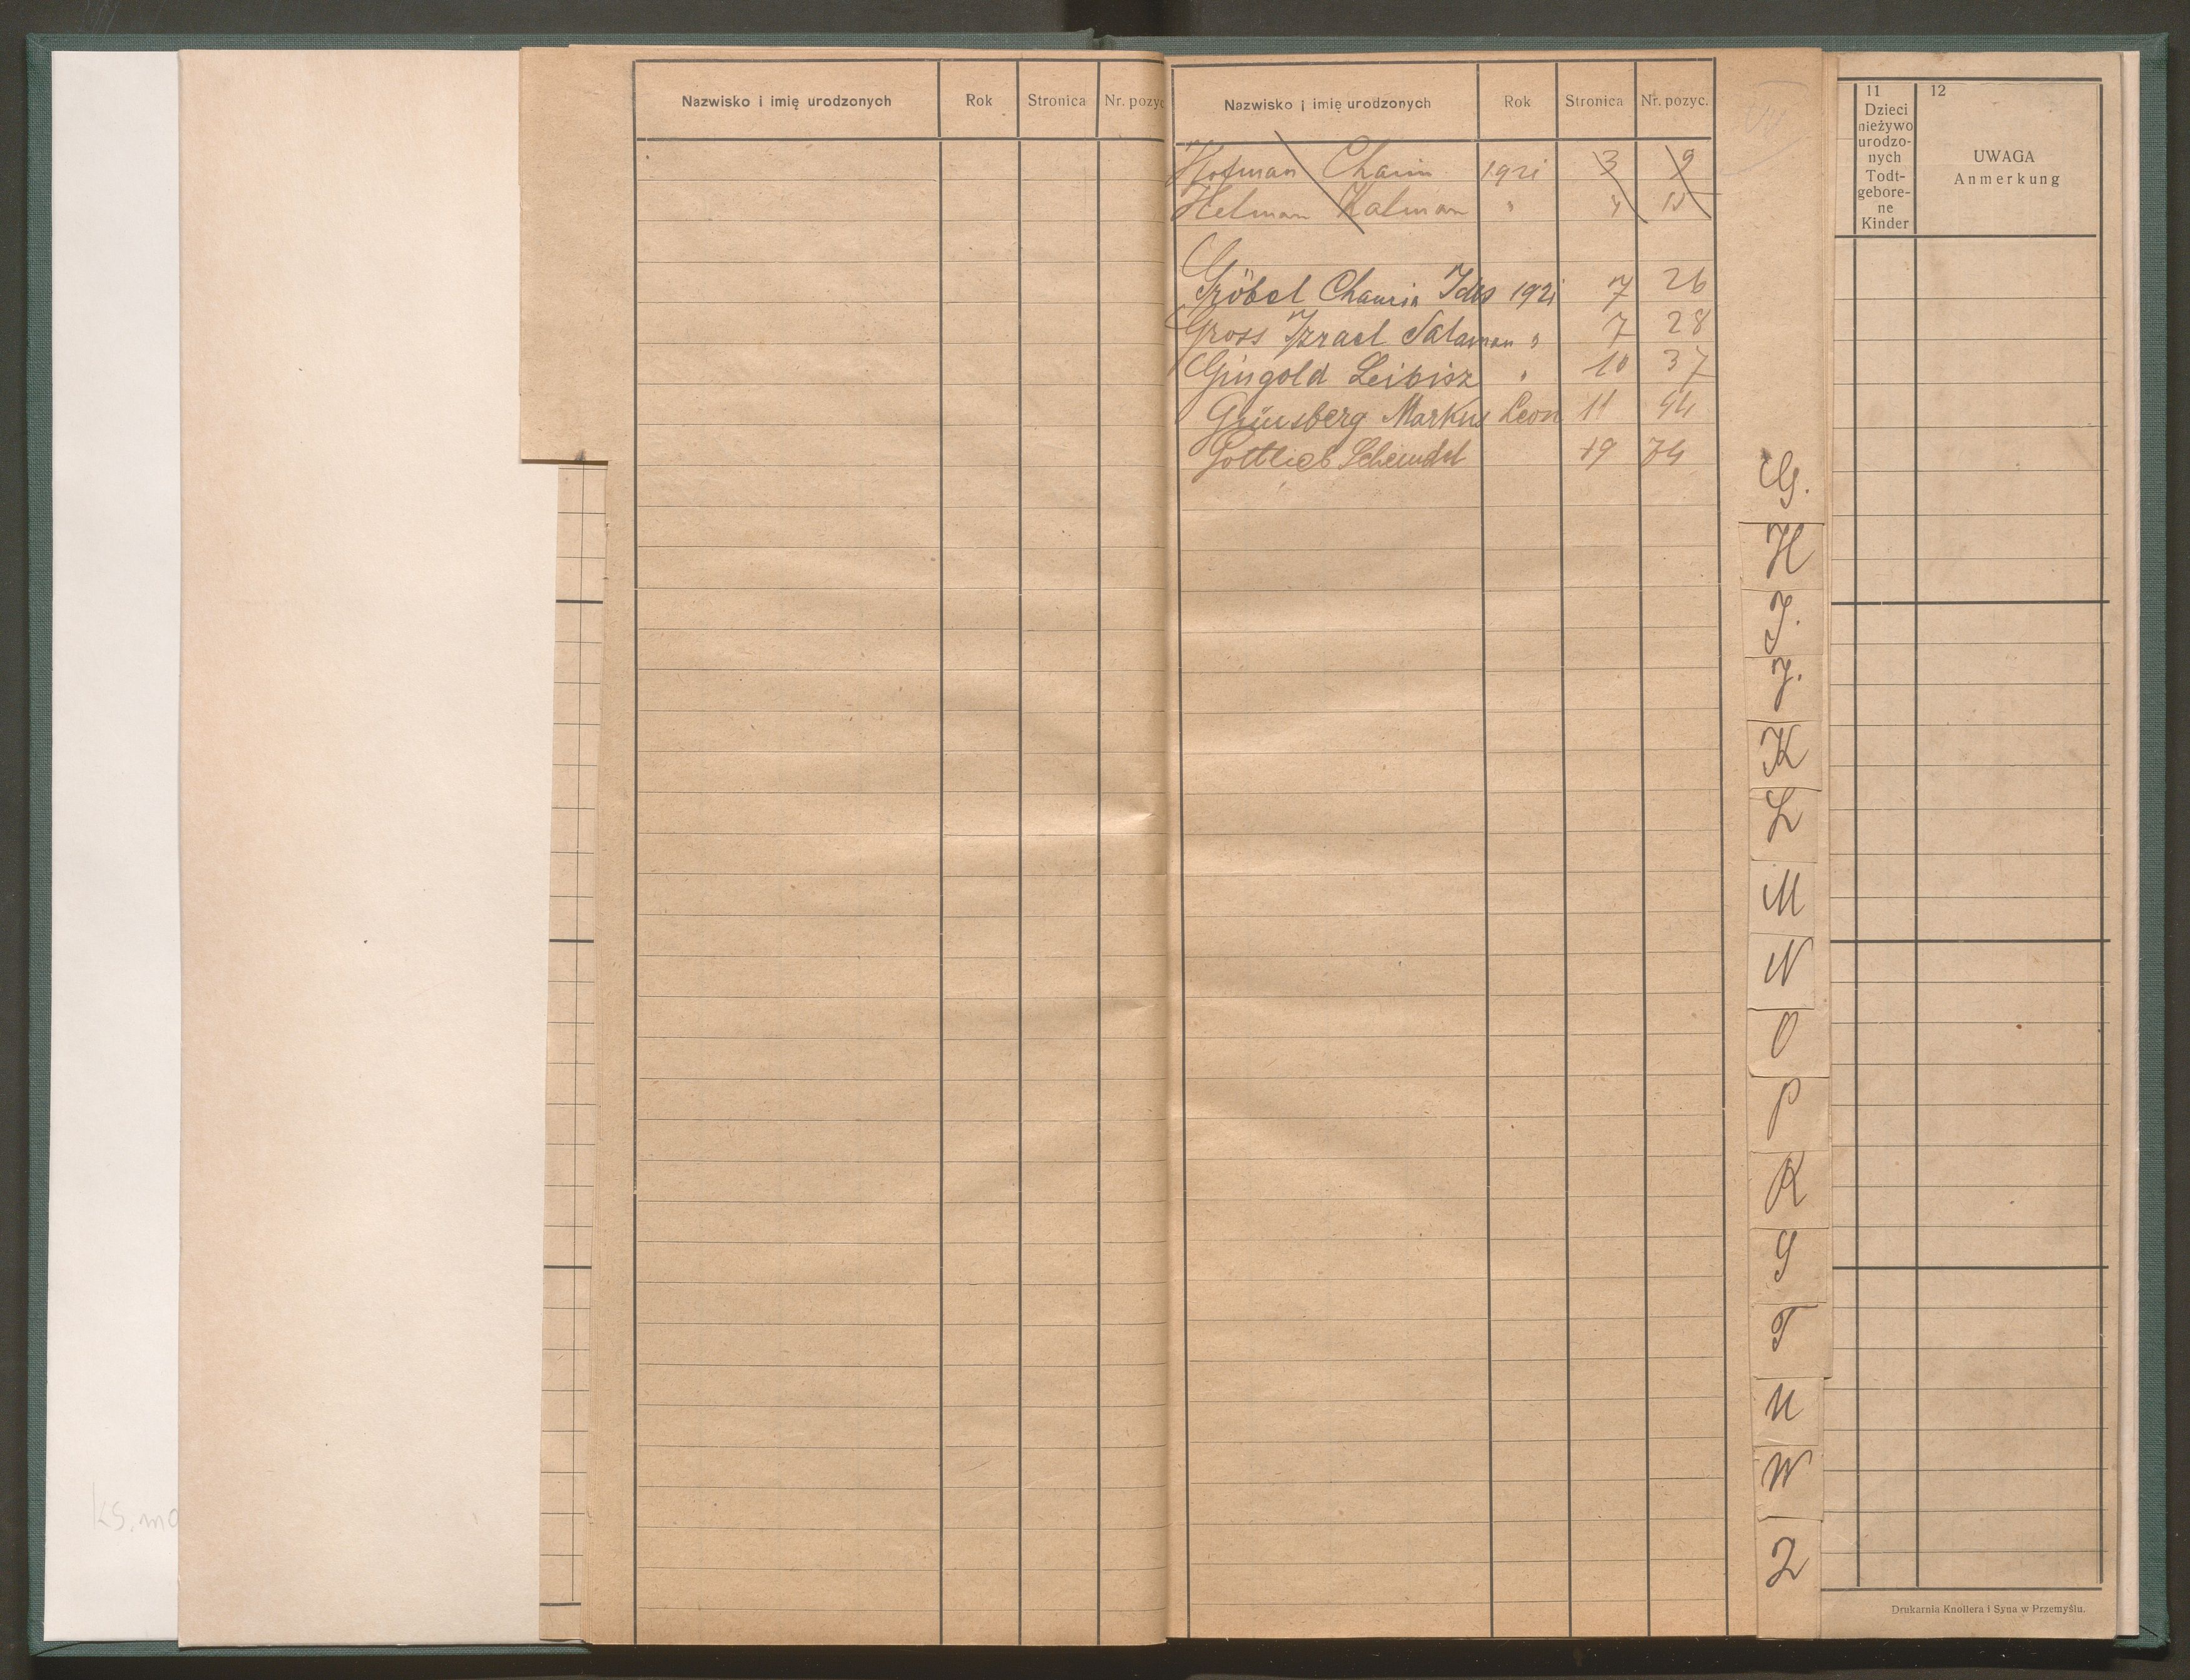 Nazwisko i imię urodzonych Rok Stronica Nr. pozyc
Nazwisko i imię urodzonych Rok Stronica Nr. pozyc.
Hofman Chaim 1921 3 9
Helman Kalman " 4
Gröbel Chamia Ides 1921 7 26
Gross Izrael Salamon " 7 28
Gingold Leibisz " 10 37
Grünsberg Markus Leon 11 44
Gottlieb Scheindel 19 74
G.
H
I.
J.
K
L
M
N
O
P
R
S
T
U
W
Z
11
Dzieci
nieżywo
urodzo-
nych
Todt-
gebore-
ne
Kinder
12
UWAGA
Anmerkung
Drukarnia Knollera i Syna w Przemyślu.
ks. mo